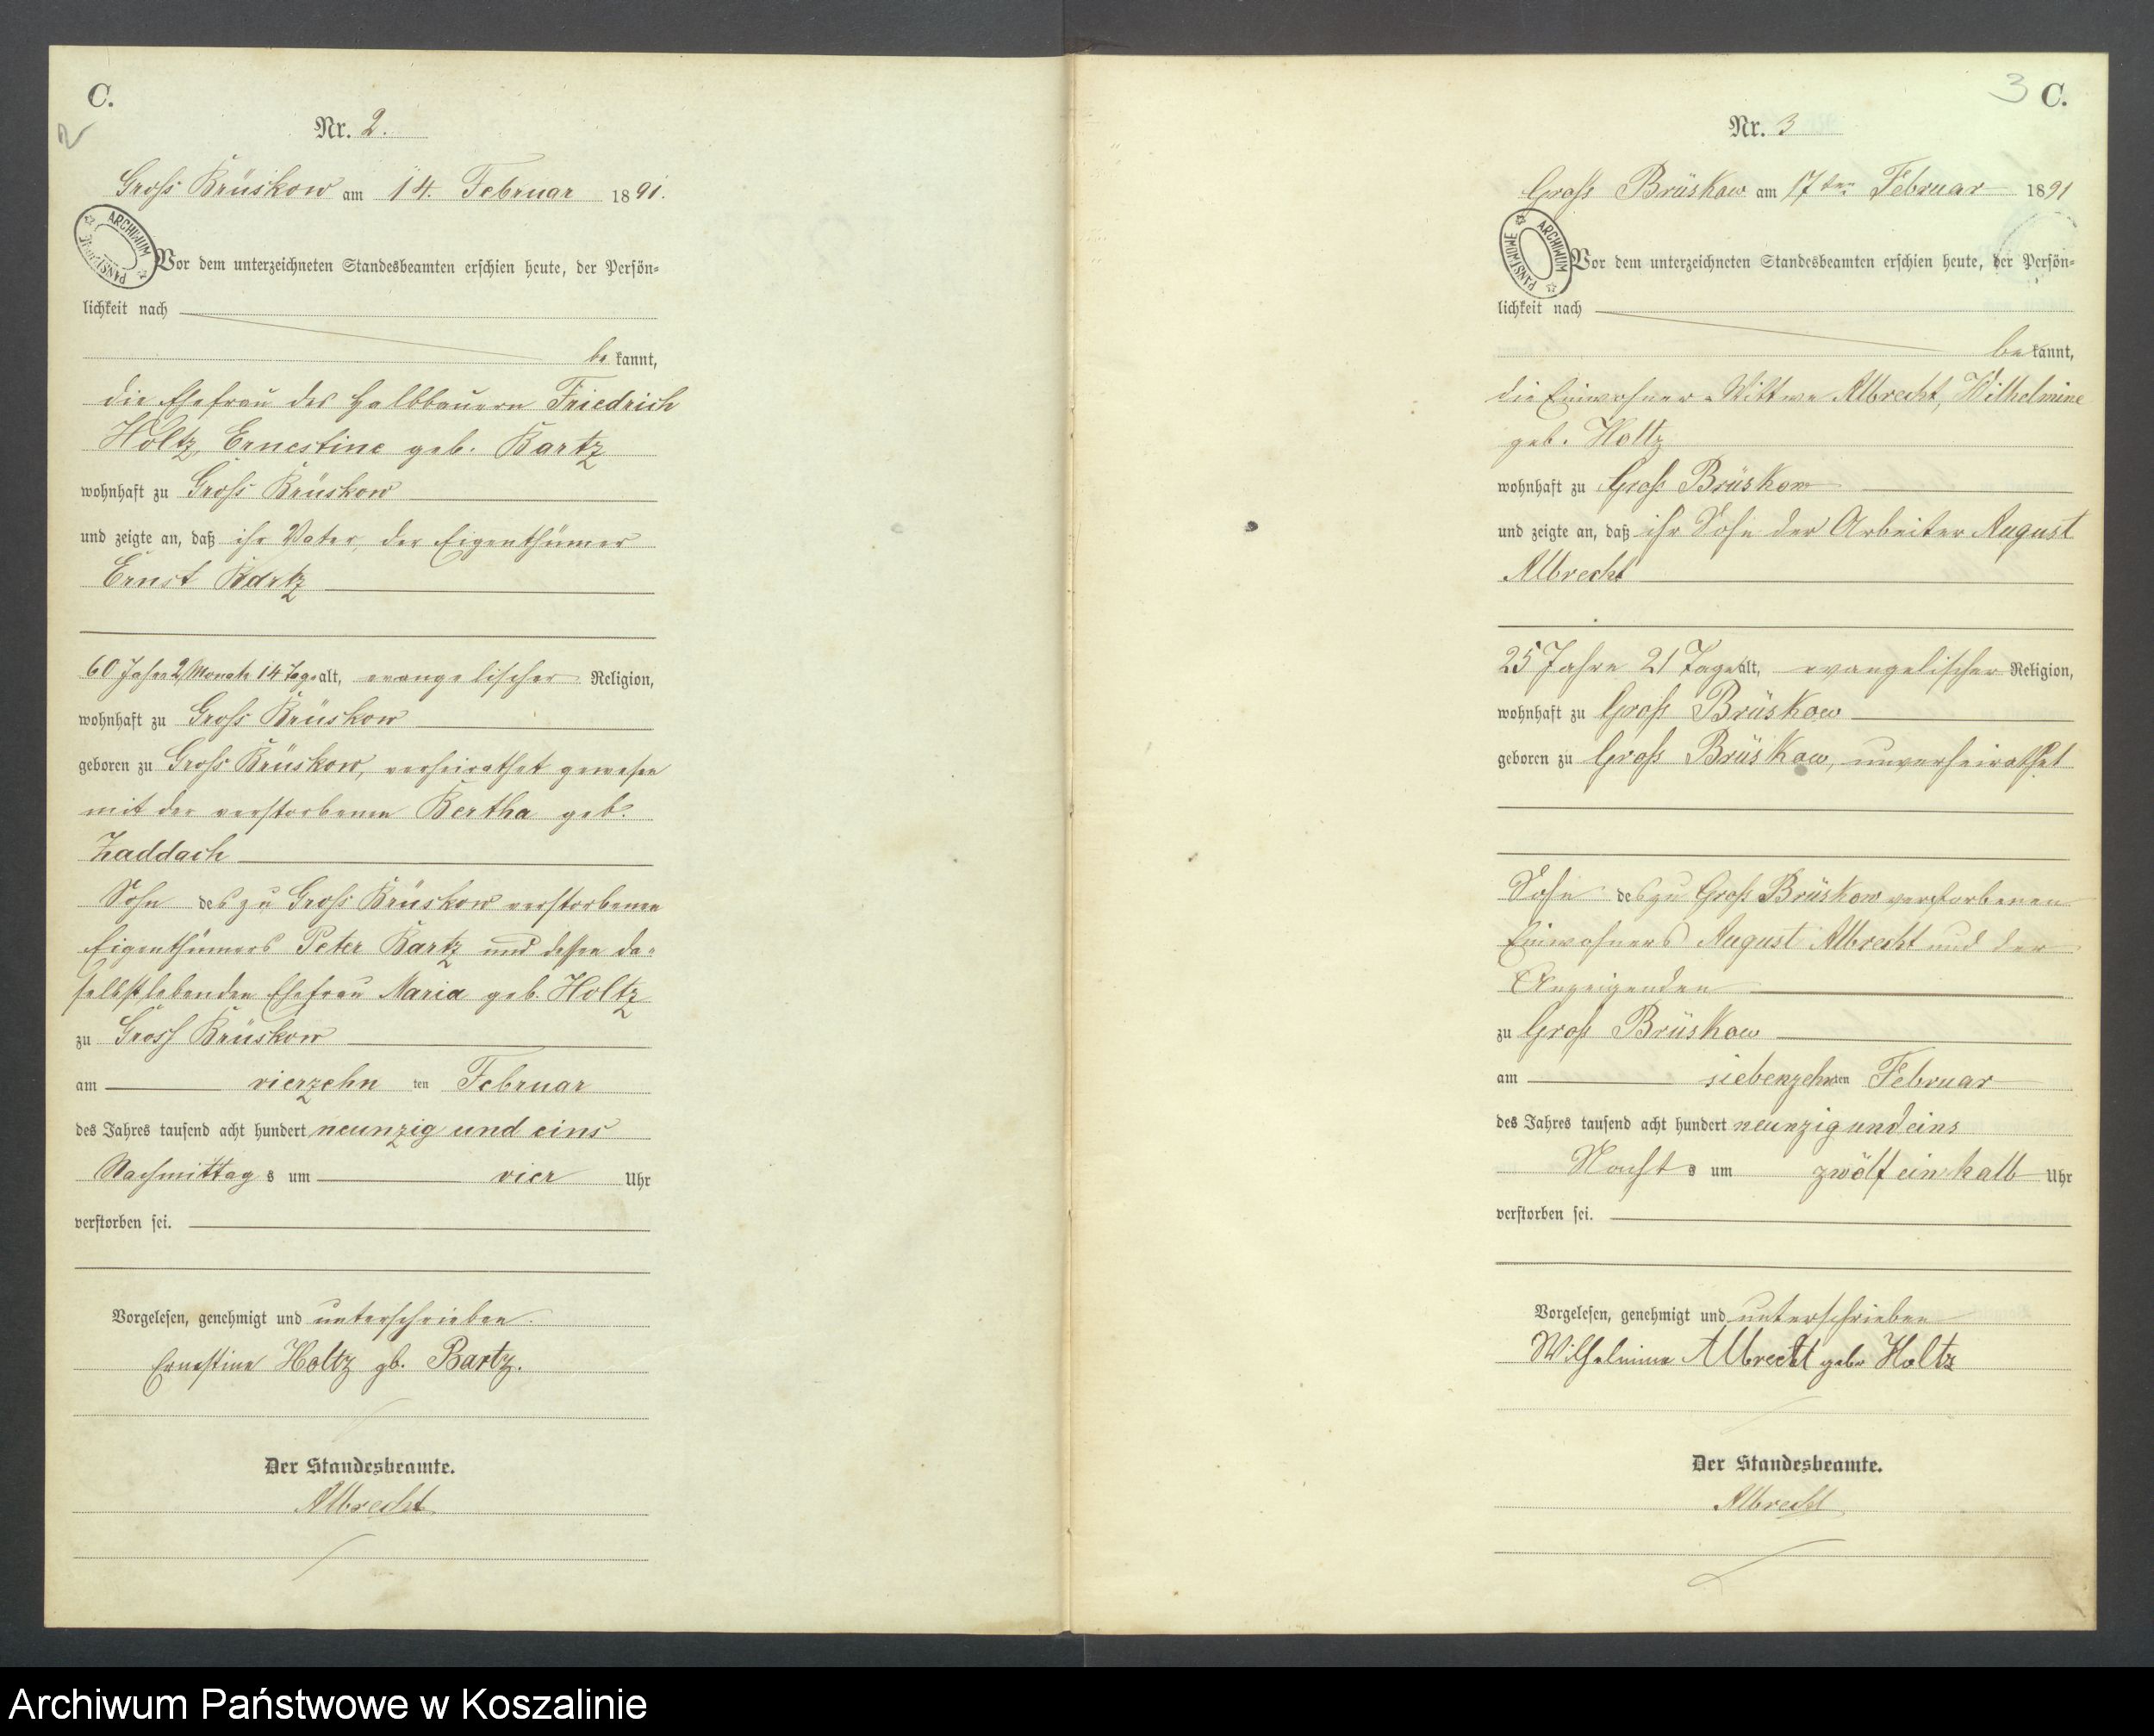 C.
2
Nr. 2.
Gross Brüskow am 14. Februar 1891.
ARCHIWUM PAŃSTWOWE
Vor dem unterzeichneten Standesbeamten erschien heute, der Persön-
lichkeit nach
be kannt,
die Ehefrau des Halbbauern Friedrich
Holtz, Ernestine geb. Bartz
wohnhaft zu Gross Brüskow
und zeigte an, daß ihr Vater, der Eigenthümer
Ernst Bartz
60 Jahre 2 Monate 14 Tage alt, evangelischer Religion,
wohnhaft zu Gross Brüskow
geboren zu Gross Brüskow, verheirathet gewesen
mit der verstorbenen Bertha geb.
Zaddach
Sohn des zu Gross Brüskow verstorbenen
Eigenthümers Peter Bartz und dessen da-
selbst lebenden Ehefrau Maria geb. Holtz
zu Gross Brüskow
am vierzehn ten Februar
des Jahres tausend acht hundert neunzig und eins
Nachmittag s um vier Uhr
verstorben sei.
Vorgelesen, genehmigt und unterschrieben.
Ernestine Holtz gb. Bartz.
Der Standesbeamte.
Albrecht
3 C.
Nr. 3
Gross Brüskow am 17ten Februar 1891
ARCHIWUM PAŃSTWOWE
Vor dem unterzeichneten Standesbeamten erschien heute, der Persön-
lichkeit nach
be kannt,
die Einwohner-Wittwe Albrecht, Wilhelmine
geb. Holtz
wohnhaft zu Gross Brüskow
und zeigte an, daß ihr Sohn der Arbeiter August
Albrecht
25 Jahre 21 Tage alt, evangelischer Religion,
wohnhaft zu Gross Brüskow
geboren zu Gross Brüskow, unverheirathet
Sohn des zu Gross Brüskow verstorbenen
Einwohners August Albrecht und der
Anzeigenden
zu Gross Brüskow
am siebenzehnten Februar
des Jahres tausend acht hundert neunzig und eins
Nacht s um zwölf ein halb Uhr
verstorben sei.
Vorgelesen, genehmigt und unterschrieben
Wilhelmine Albrecht geb Holtz
Der Standesbeamte.
Albrecht
Archiwum Państwowe w Koszalinie